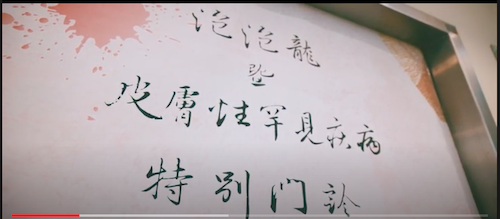 泡泡龍
暨
皮膚性罕見疾病
特別門診